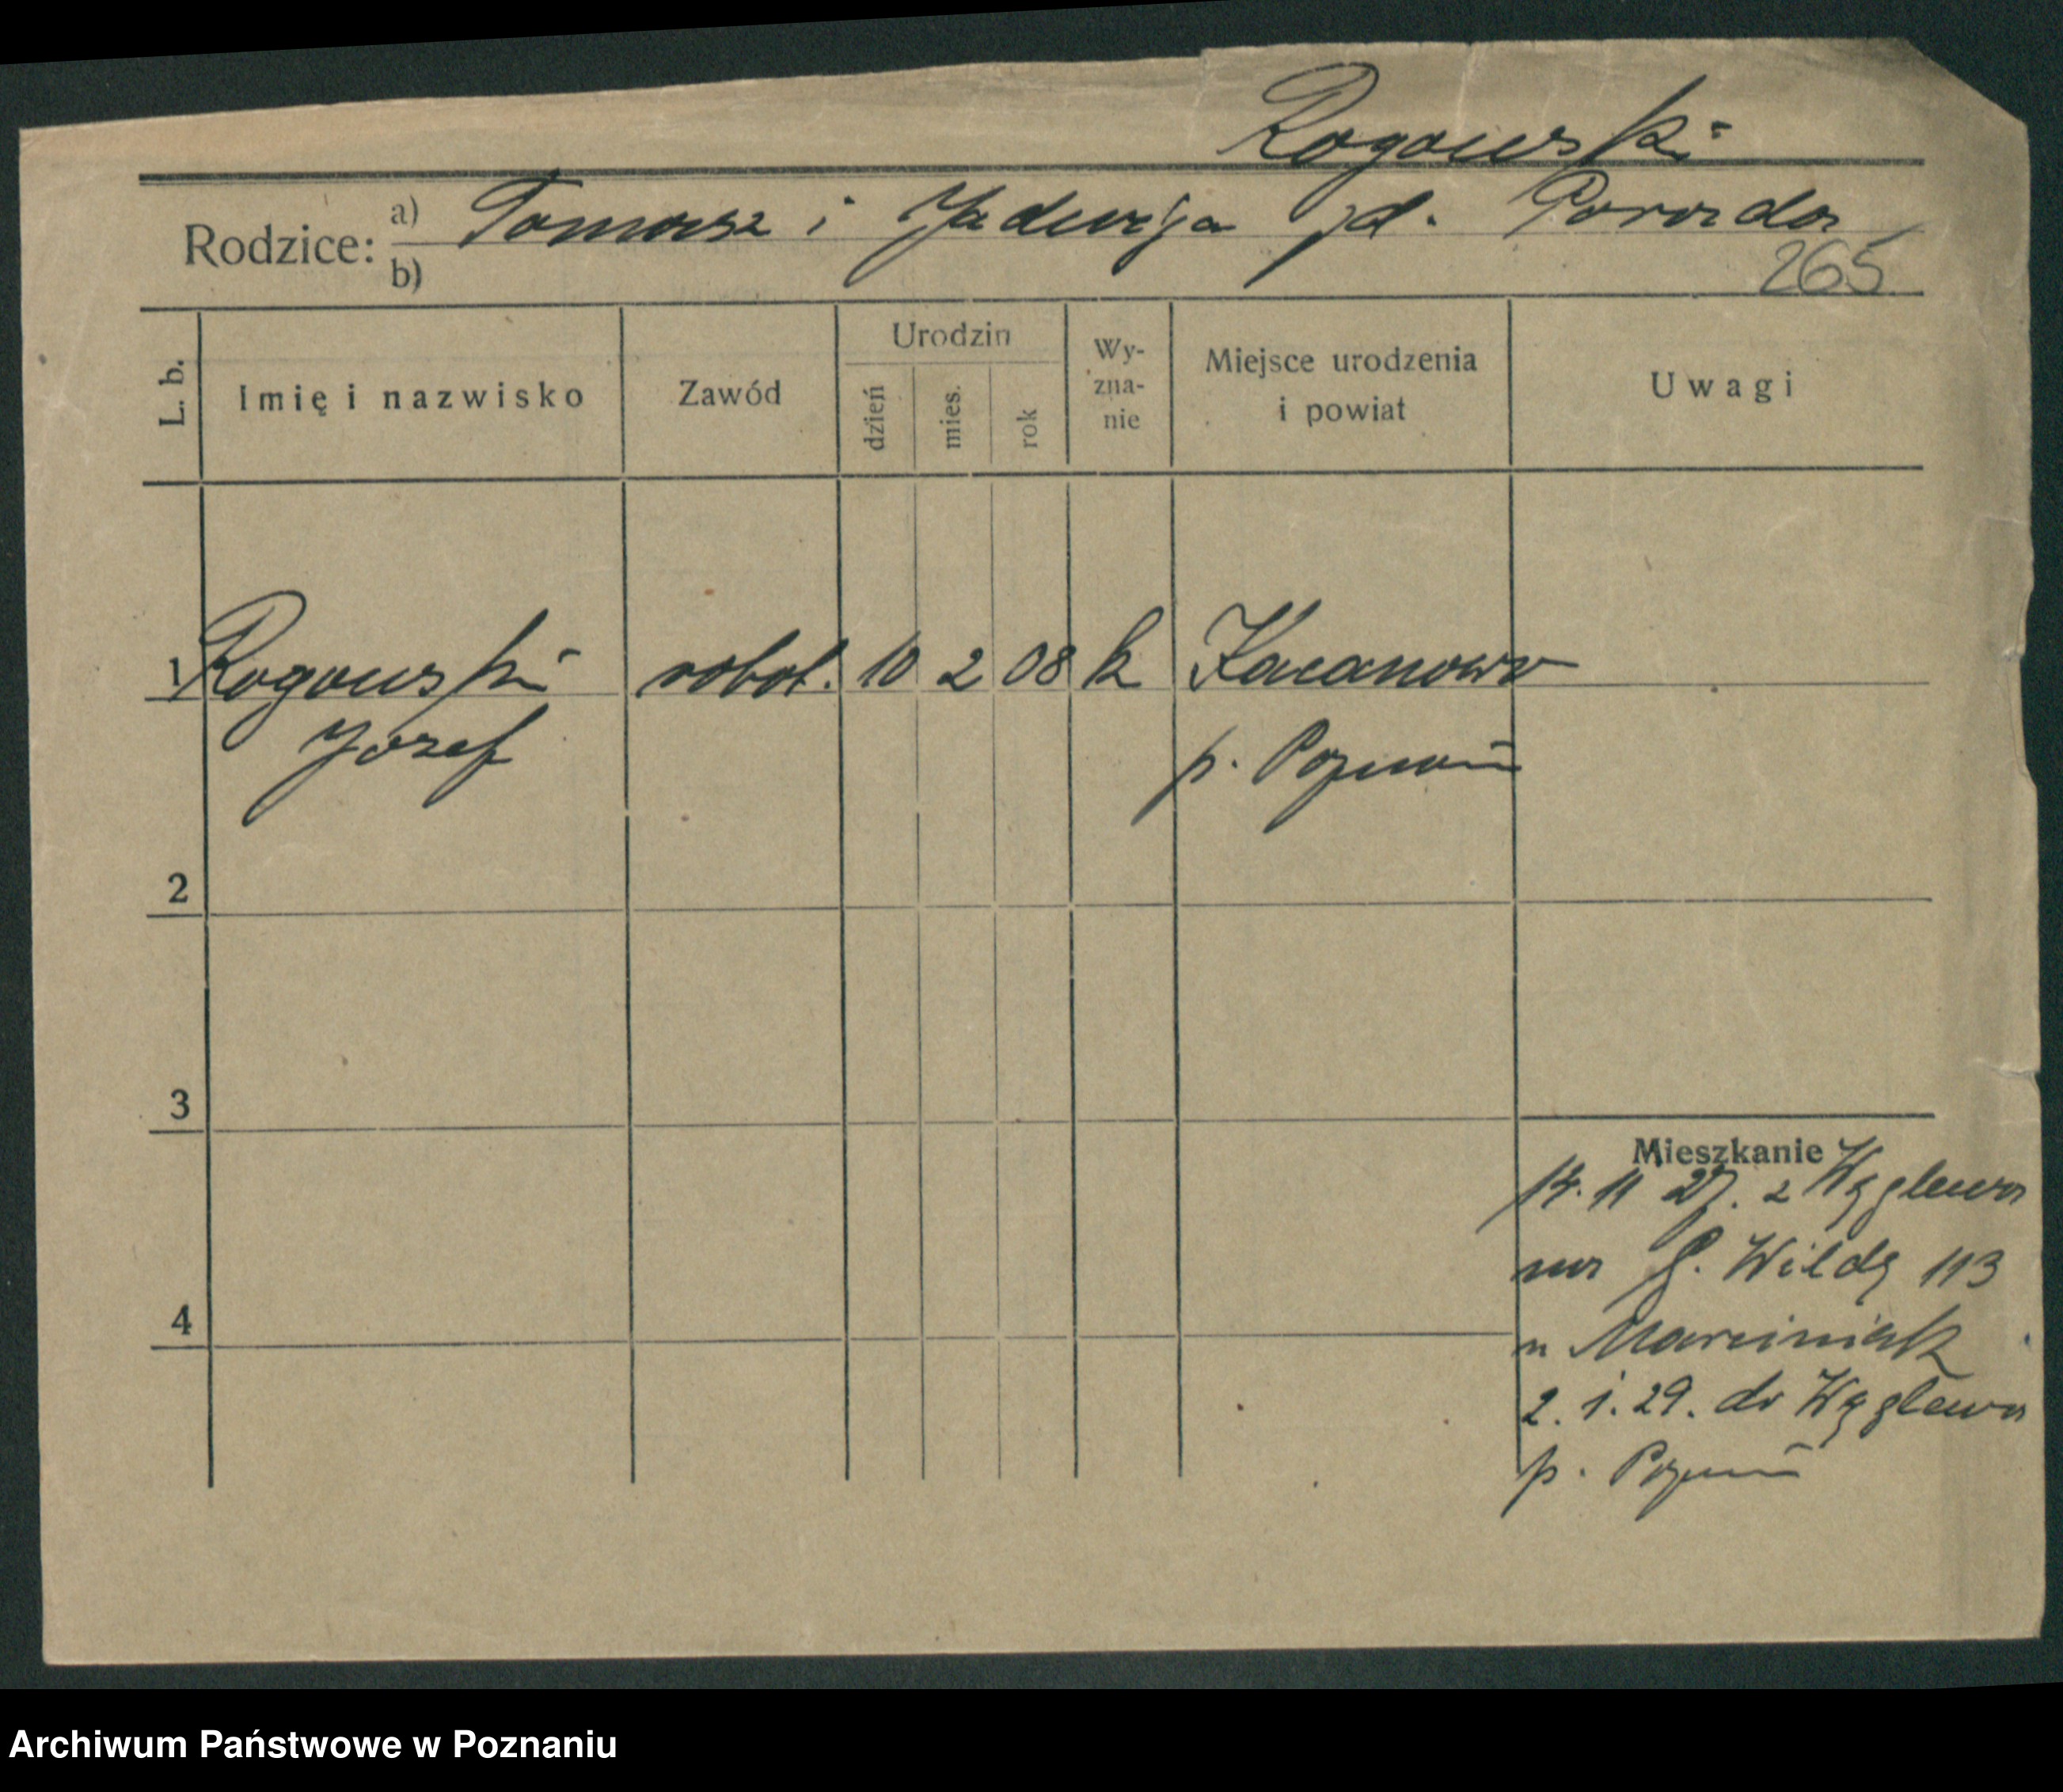 Rogowski
Rodzice: a) Tomasz i Jadwiga zd. Porada
b)
265
L. b. Imię i nazwisko Zawód Urodzin dzień mies. rok Wy-zna-nie Miejsce urodzenia i powiat Uwagi
1 Rogowski robot. 10 2 08 k Kacanowo
Józef p. Poznań
2
3
Mieszkanie
14. 11 27. z Węglewa
na G. Wildę 113
u Marciniak
4
2. 1. 29. do Węglewa
p. Poznań
Archiwum Państwowe w Poznaniu